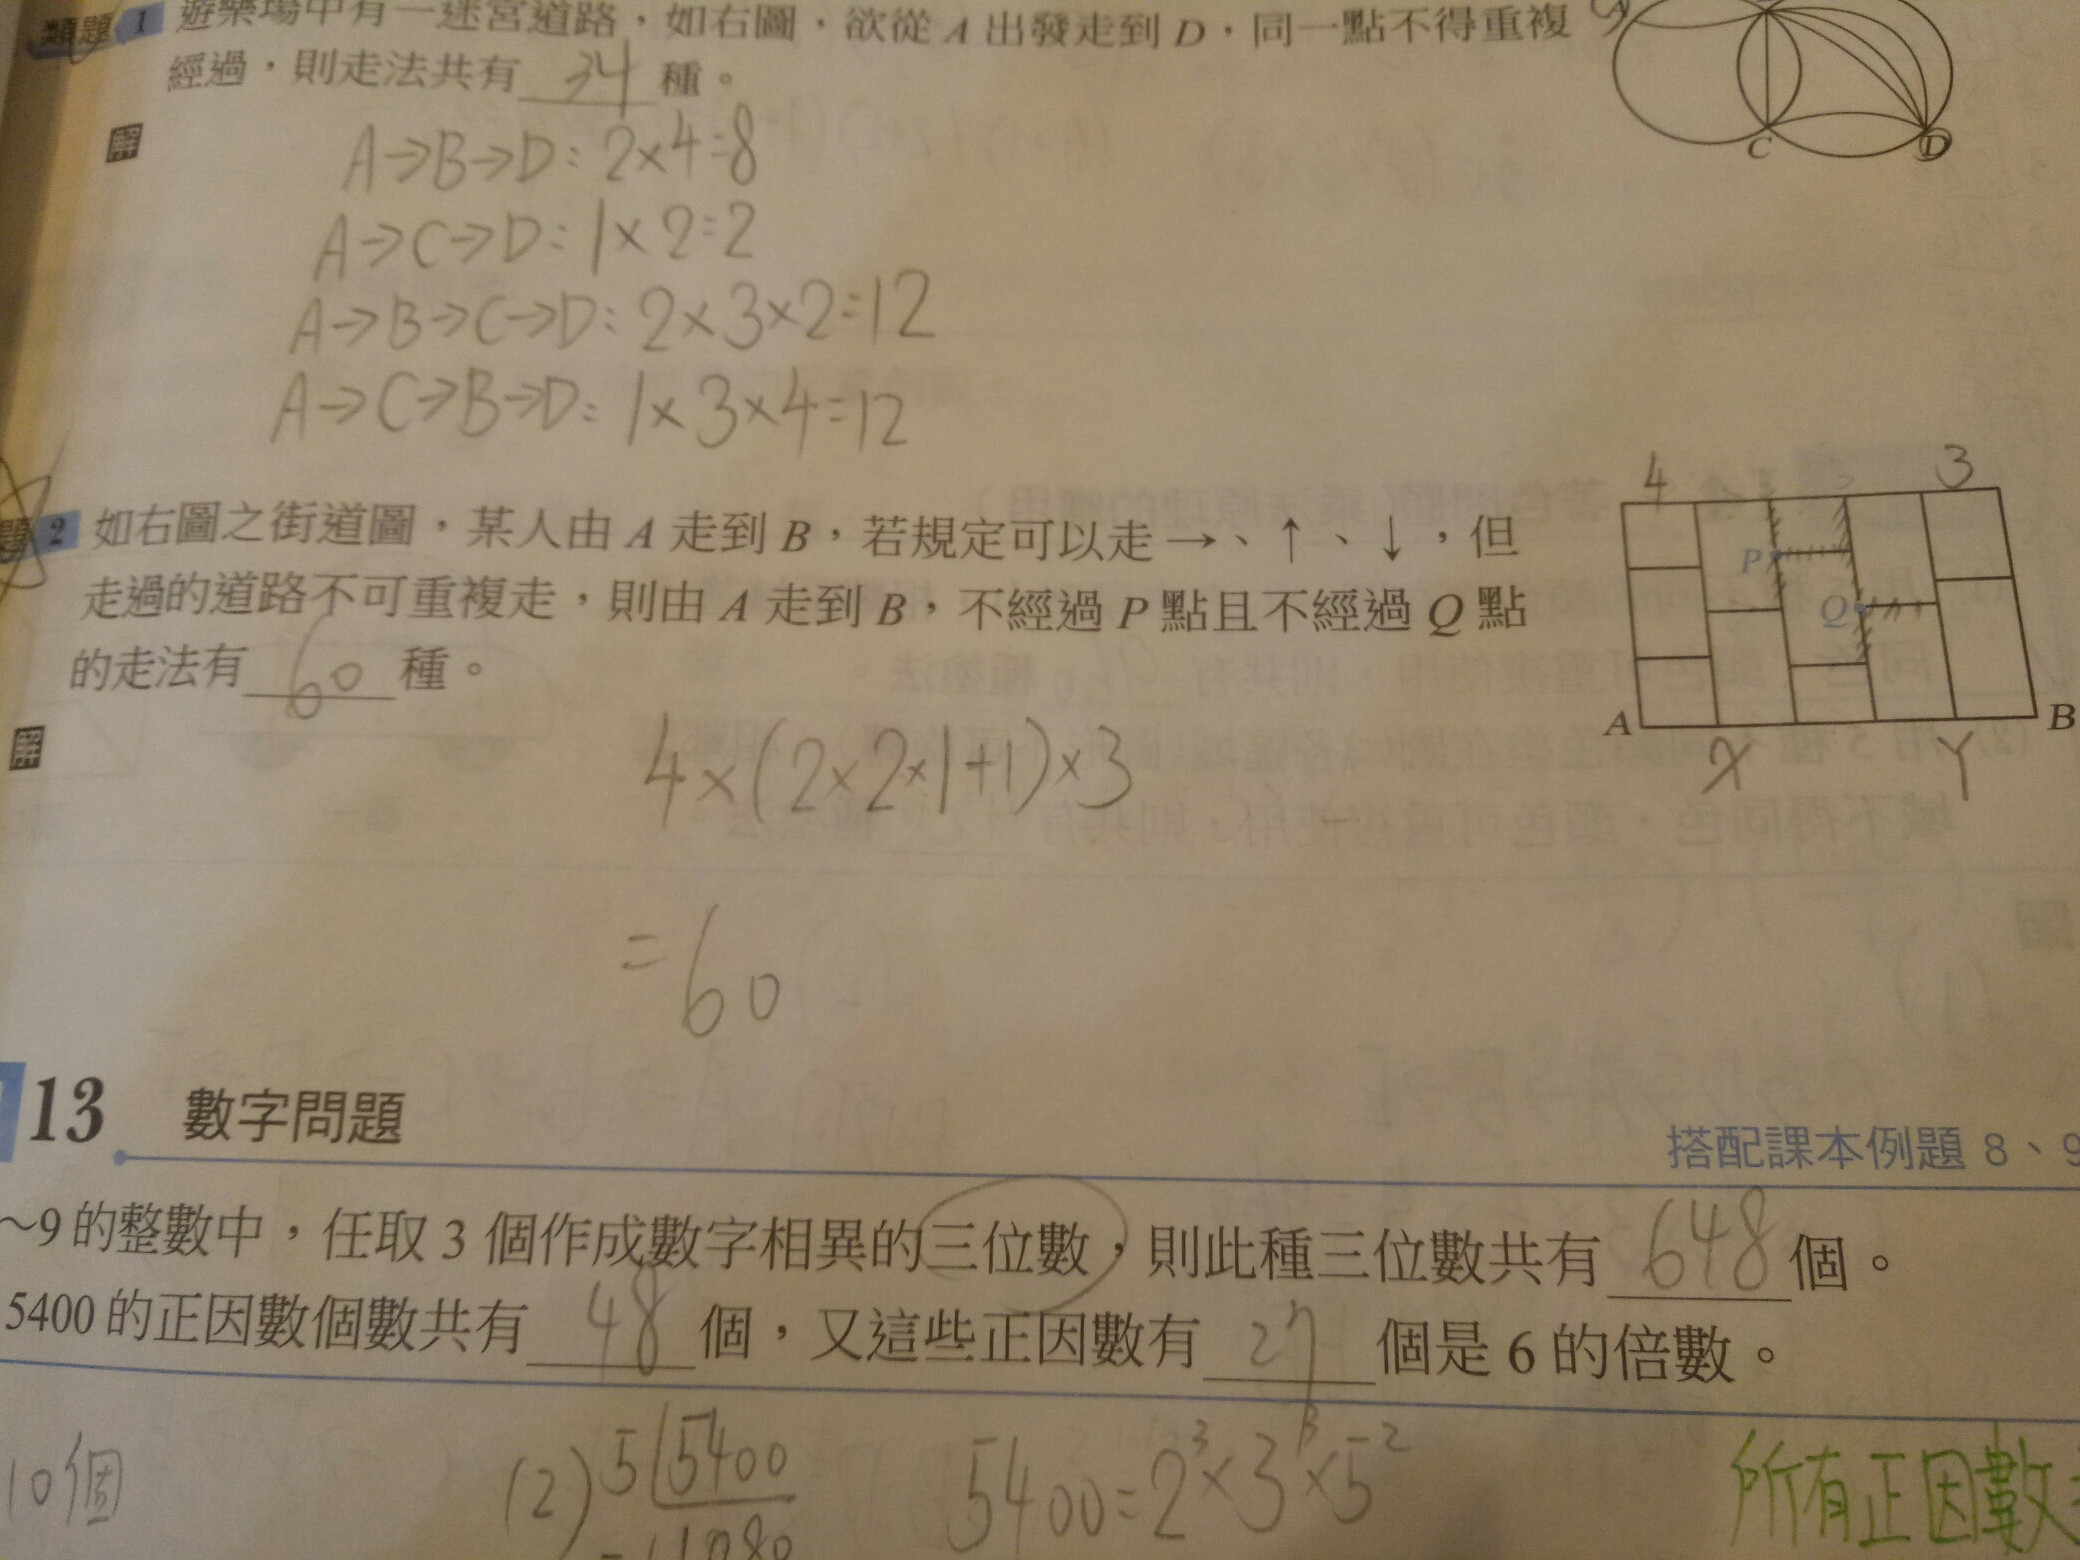 類題 1 遊樂場中有一迷宮道路，如右圖，欲從 A 出發走到 D，同一點不得重複
經過，則走法共有 34 種。
A
C
D
解
A→B→D：2×4=8
A→C→D：1×2=2
A→B→C→D：2×3×2=12
A→C→B→D：1×3×4=12
題 2 如右圖之街道圖，某人由 A 走到 B，若規定可以走→、↑、↓，但
走過的道路不可重複走，則由 A 走到 B，不經過 P 點且不經過 Q 點
的走法有 60 種。
4
3
P
Q
A
B
X
Y
解
4×(2×2×1+1)×3
=60
13 數字問題
搭配課本例題 8、9
～9 的整數中，任取 3 個作成數字相異的三位數，則此種三位數共有 648 個。
5400 的正因數個數共有 48 個，又這些正因數有 27 個是 6 的倍數。
10個
(2) 5 5400
1080
5400=2³×3³×5²
所有正因數